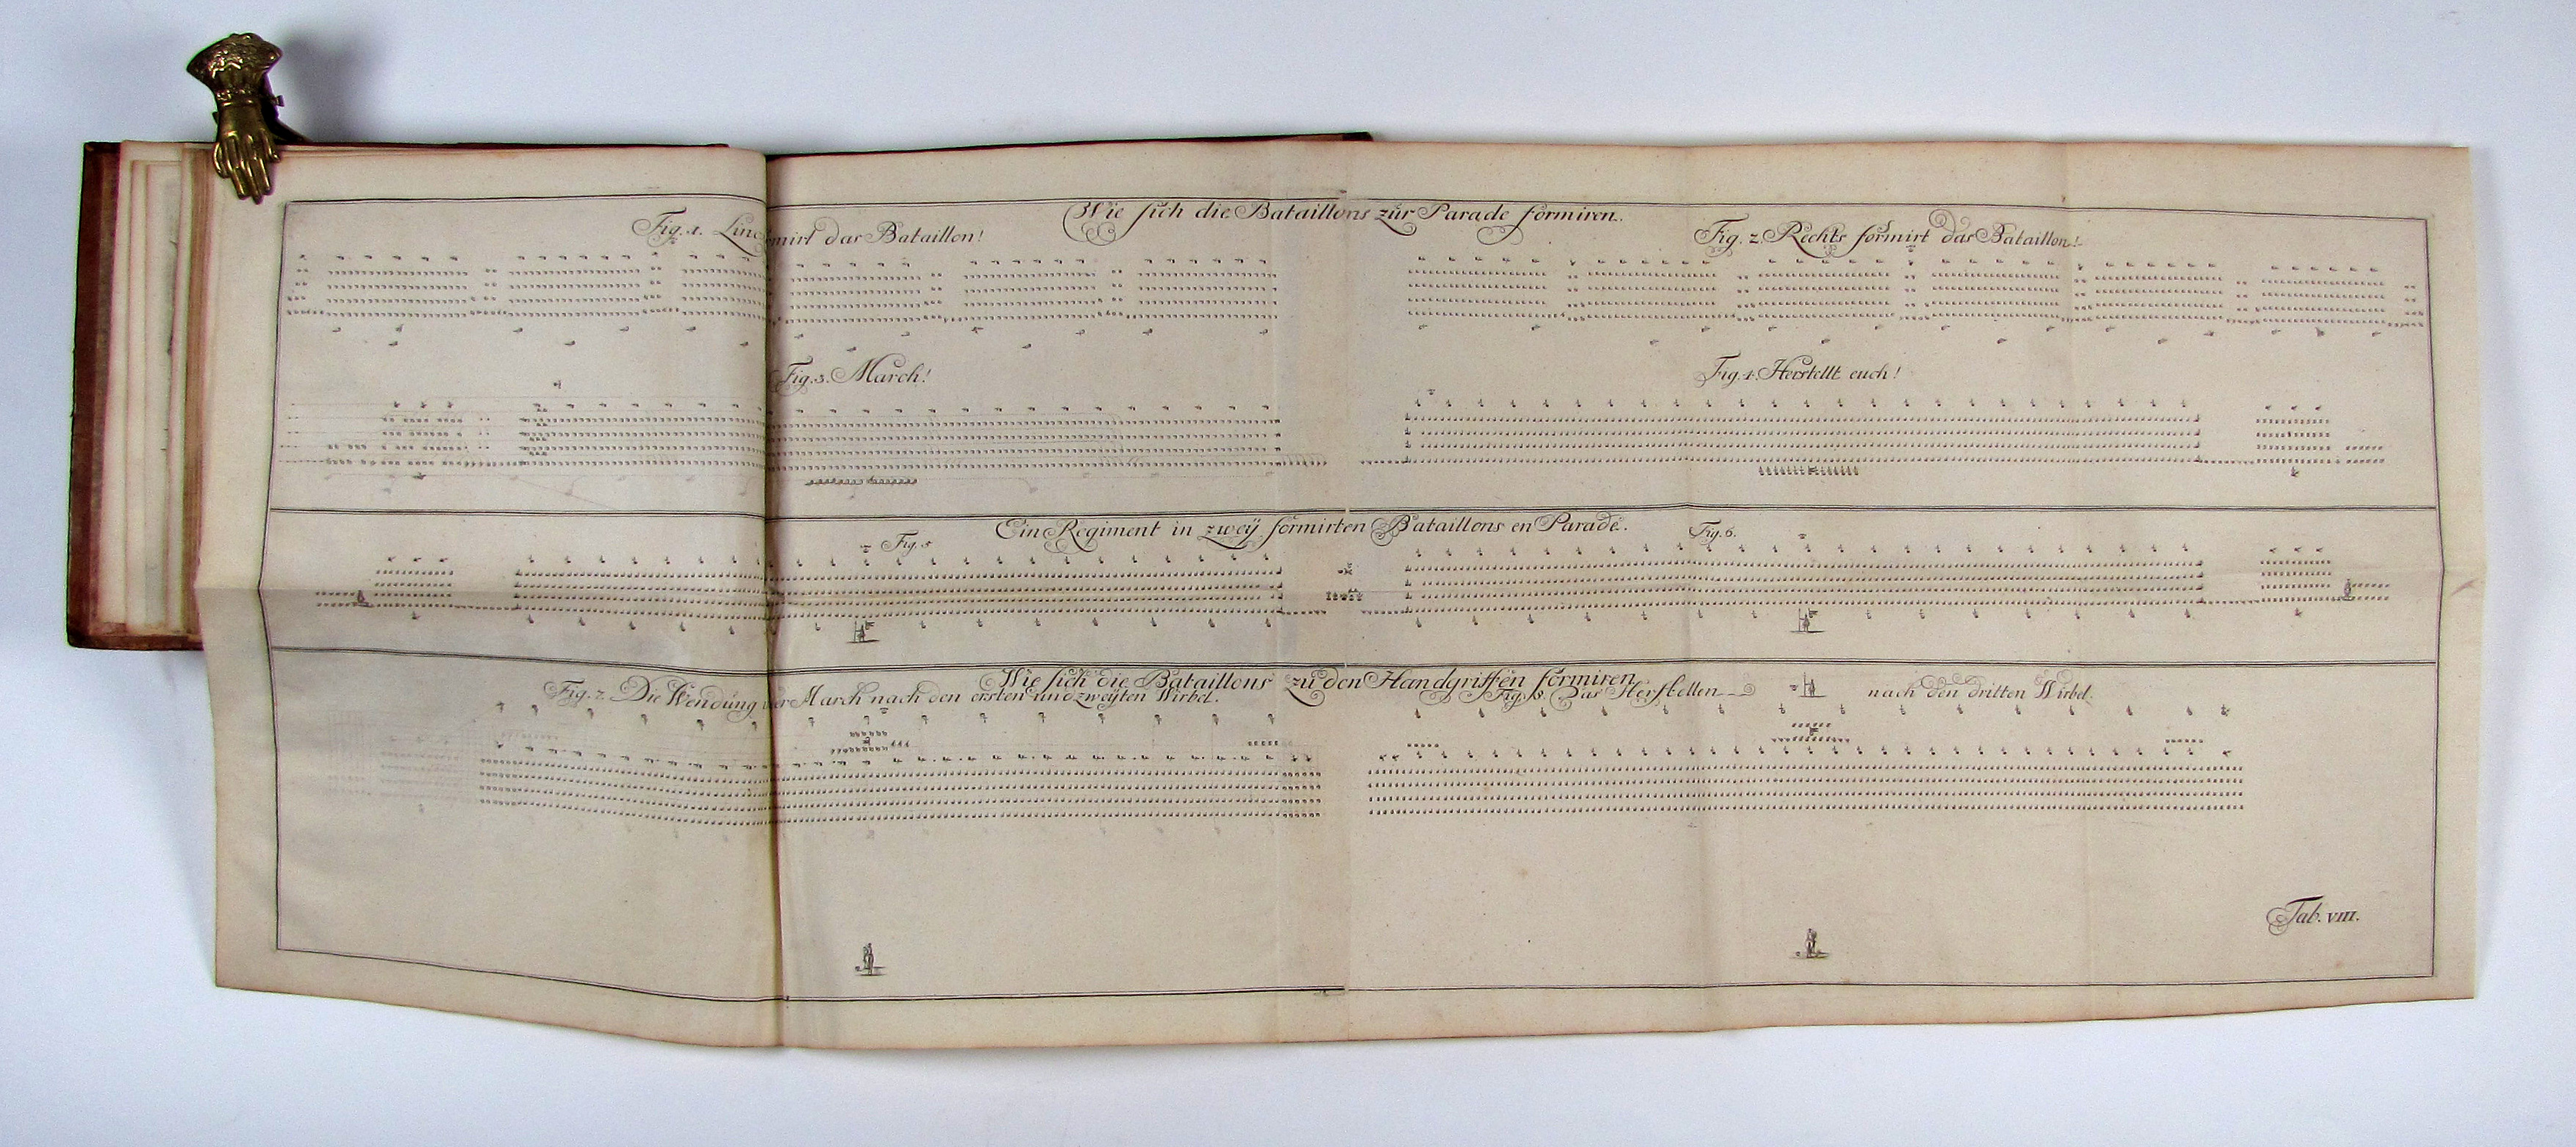 Wie sich die Bataillons zur Parade formiren.
Fig. 1. Linc mirt das Bataillon!
Fig. 2. Rechts formirt das Bataillon!
Fig. 3. March!
Fig. 4. Herstellt euch!
Ein Regiment in zweÿ formirten Bataillons en Parade.
Fig. 5
Fig. 6.
Wie sich die Bataillons zu den Handgriffen formiren
Fig. 7. Die Wendung der March nach den ersten und zweÿten Wirbel.
Fig. 8. Das Herstellen nach den dritten Wirbel.
Tab. VIII.